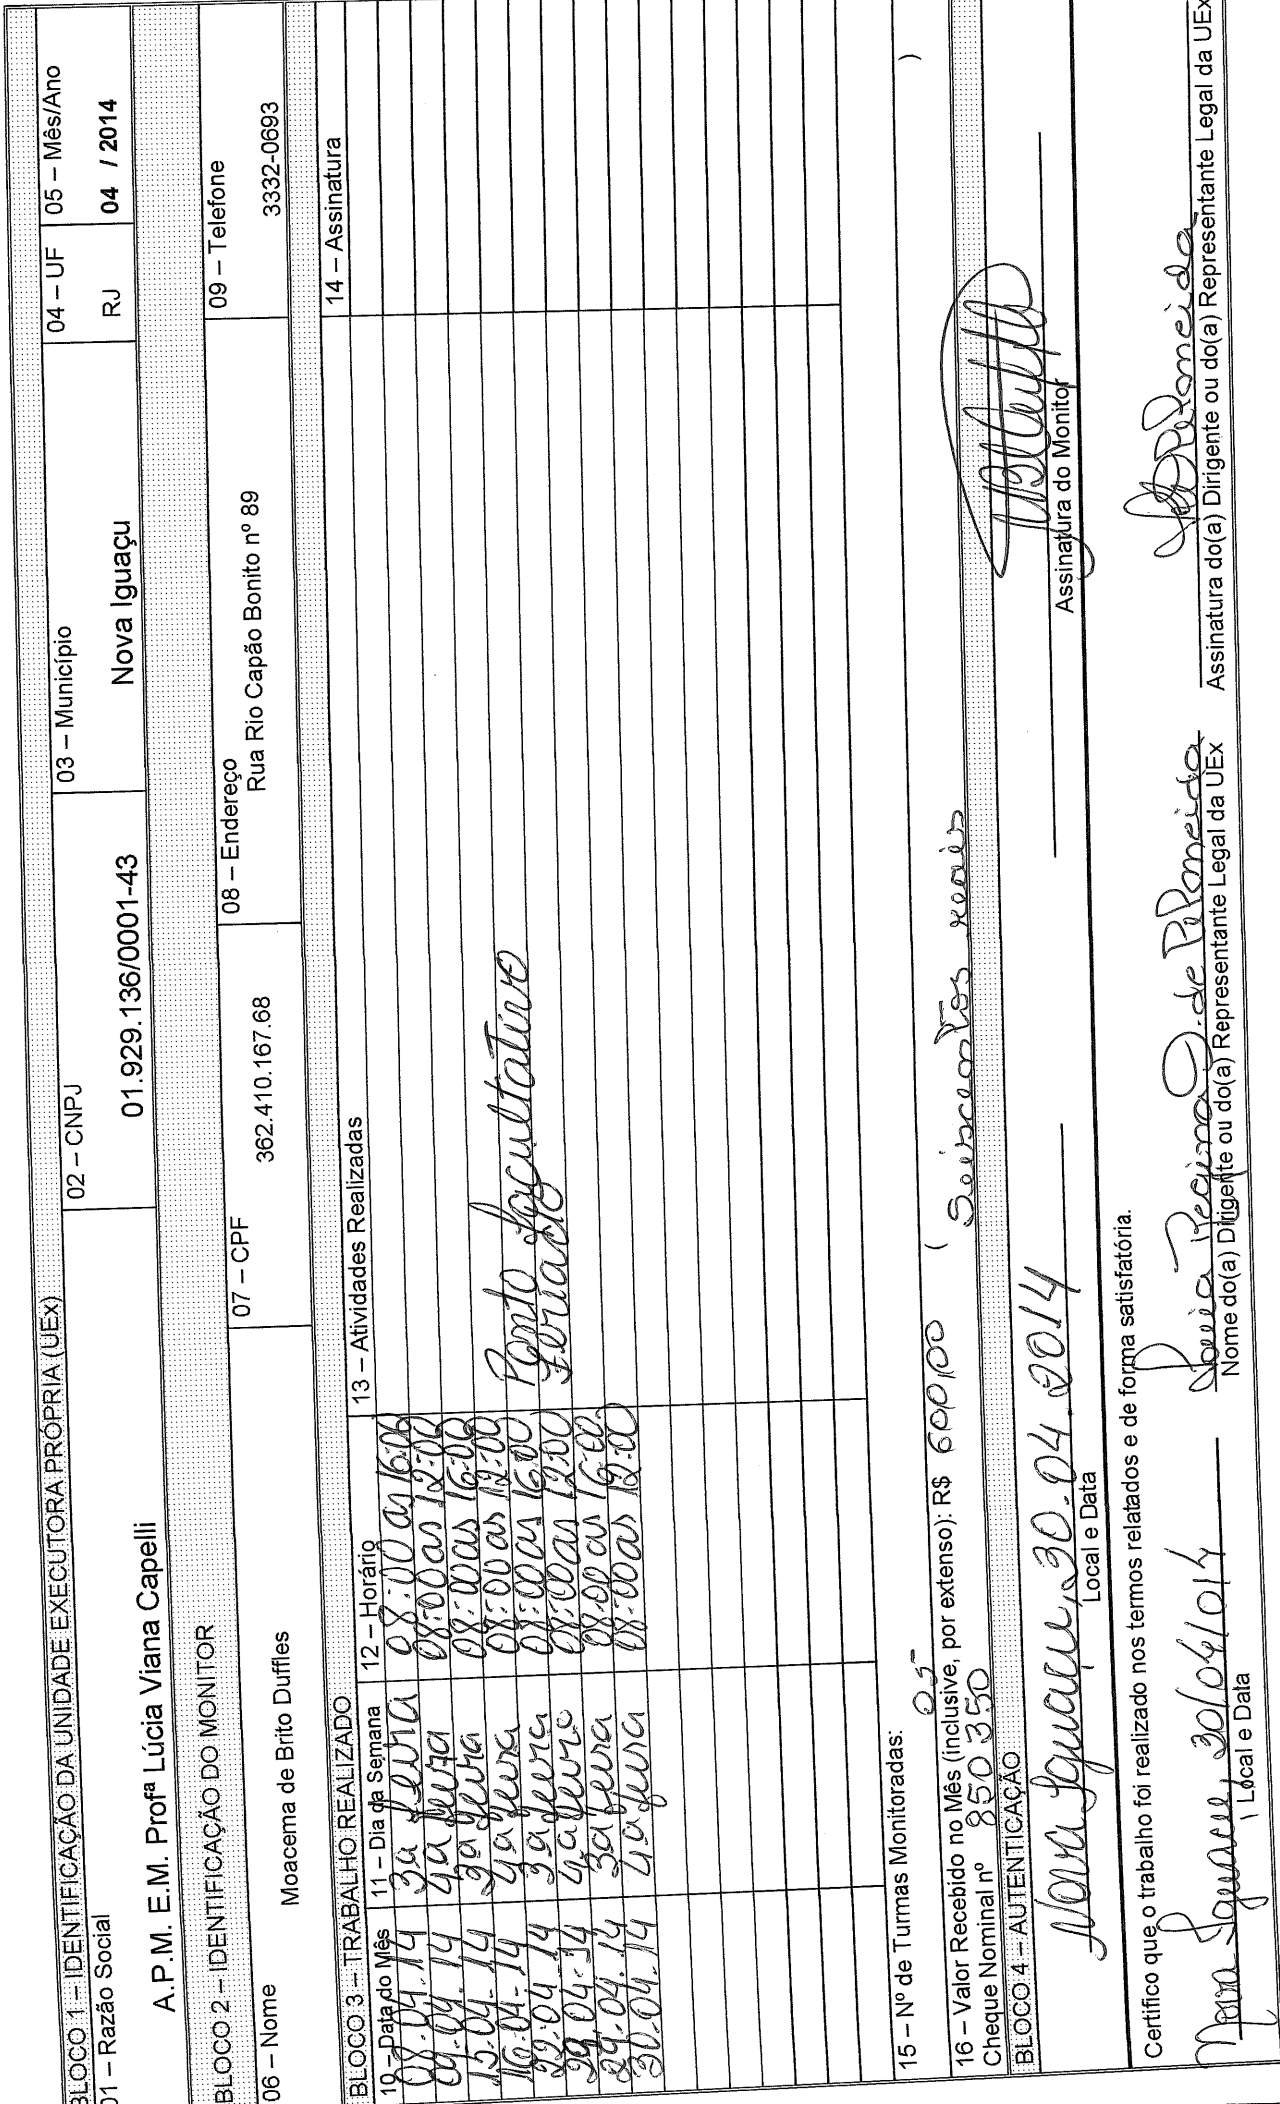 BLOCO 1 – IDENTIFICAÇÃO DA UNIDADE EXECUTORA PRÓPRIA (UEx)
01 – Razão Social 02 – CNPJ 03 – Município 04 – UF 05 – Mês/Ano
A.P.M. E.M. Profª Lúcia Viana Capelli 01.929.136/0001-43 Nova Iguaçu RJ 04 / 2014
BLOCO 2 – IDENTIFICAÇÃO DO MONITOR
06 – Nome 07 – CPF 08 – Endereço 09 – Telefone
Moacema de Brito Duffles 362.410.167.68 Rua Rio Capão Bonito nº 89 3332-0693
BLOCO 3 – TRABALHO REALIZADO
10 – Data do Mês 11 – Dia da Semana 12 – Horário 13 – Atividades Realizadas 14 – Assinatura
08.04.14 3a feira 08:00 as 16:00
09.04.14 4a feira 08:00 as 12:00
15.04.14 3a feira 08:00 as 16:00
16.04.14 4a feira 08:00 as 12:00
22.04.14 3a feira 08:00 as 16:00 Ponto facultativo
04.14 4a feira 08:00 as 12:00 feriado
29.04.14 3a feira 08:00 as 16:00
30.04.14 4a feira 08:00 as 12:00
15 – Nº de Turmas Monitoradas: 05
16 – Valor Recebido no Mês (inclusive, por extenso): R$ 600,00 ( Seiscentos reais )
Cheque Nominal nº 850350
BLOCO 4 – AUTENTICAÇÃO
Nova Iguaçu, 30.04.2014
Local e Data Assinatura do Monitor
Certifico que o trabalho foi realizado nos termos relatados e de forma satisfatória.
Nova Iguaçu, 30/04/2014
Local e Data Nome do(a) Dirigente ou do(a) Representante Legal da UEx Assinatura do(a) Dirigente ou do(a) Representante Legal da UEx